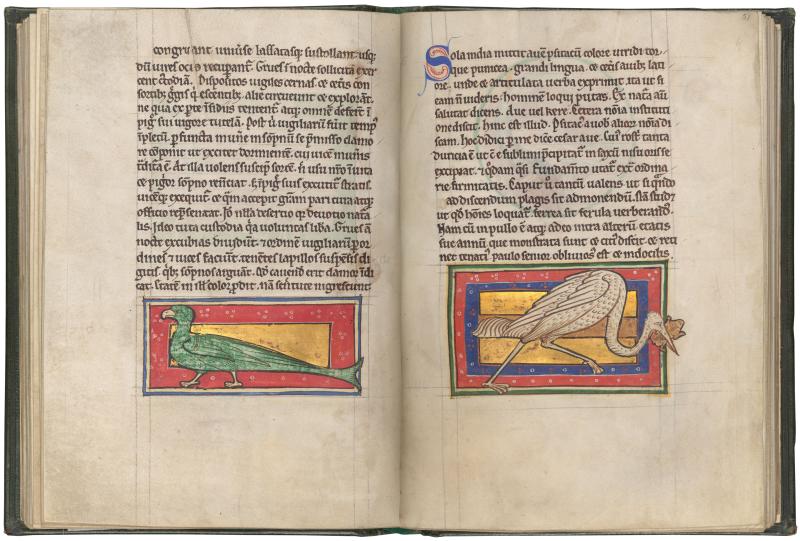 congruant uniuse lassatasq; sustollant. usq;
dū uires ocio recuperant. Grues nocte sollicitā exer
cent custodiā. Dispositos uigiles cernas. ⁊ cetis con
sortib; quiescentib; alie circueunt ⁊ explorāt.
ne qua ex parte īsidiis temtent atq; omnē deferūt ī
pigō sui uigore tutelā. Post ū uigiliarū fuit temp
īpletū. pfuncta mune in sopnū se pmisso clamo
re cōponit ut excitet dormientē. cui uicē muneris
At illa uolens suscipit sortē. n usu nrō īuita
⁊ pigor sopno renūciat. s; īpig suis excutit stratis.
uicēq; exequit. ⁊ qm accepit grām pari cura atq;
officio repsentat. Jō nlla desertio q deuotio natu
ralis. Jdeo tuta custodia qa uoluntas libā. Grues ī
nocte excubias diuidunt. ⁊ ordinē uigiliarū p or
dines ⁊ uices faciunt. tenentes lapillos suspensis di
gitis. qb; sopnos arguant. Qd cauend erit clamor īdi
cat. etatē in illis color pdit. nā senecute nigrescunt
51
Sola india mittit auē psitacū colore uiridi tor
que puniceo. grandi lingua. ⁊ cetis auib; lati
ore. unde ⁊ articulata uerba exprimit. ita ut si
eam n uideris. hominē loqui putes. Ex natā aū
salutat dicens. Aue uel kere. Cetera nōia instituti
one discit. hinc est illud. Psitac a uob alior nōia di
scam. hoc didici p me dice cesar aue. Cui rostrī tanta
duricia ē ut cū e sublimi pcipitat in saxū nisu oris se
excipiat. ⁊ qdam qsi fundamto utat extordina
rie firmitatis. Caput ū tantū ualens ut si qndo
ad discendum plagis sit admonendū. nā studet
ut qd hoīes loquat. ferrea sit ferula uerberand.
Nam cū in pullo ē atq; adeo intra alterū etatis
sue annū. que monstrata sunt ⁊ citi discit. ⁊ reti
net tenati. paulo senior obliuios est ⁊ indocilis.